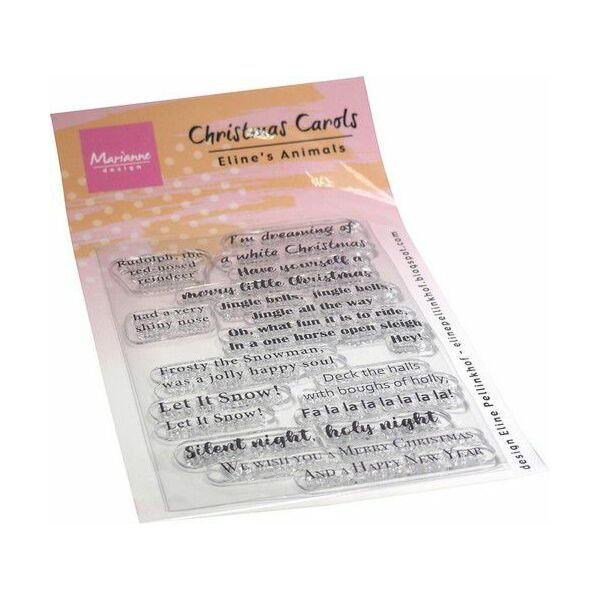 Marianne
design
Christmas Carols
Eline's Animals
I'm dreaming of
a white Christmas
Rudolph, the
red-nosed
reindeer
Have yourself a
merry little Christmas
had a very
shiny nose
Jingle bells, jingle bells
Jingle all the way
Oh, what fun it is to ride,
In a one horse open sleigh
Hey!
Frosty the Snowman,
was a jolly happy soul
Let It Snow!
Let It Snow!
Deck the halls
with boughs of holly,
Fa la la la la la la la!
Silent night, holy night
We wish you a Merry Christmas
And a Happy New Year
design Eline Pellinkhof - elinepellinkhof.blogspot.com